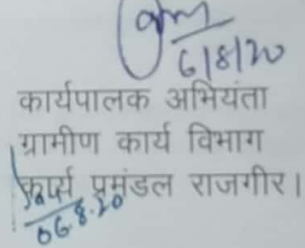 6/8/20
कार्यपालक अभियंता
ग्रामीण कार्य विभाग
कार्य प्रमंडल राजगीर।
06.8.20